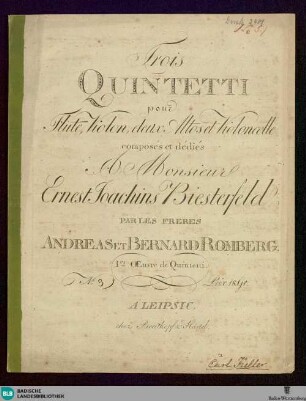 Trois
QUINTETTI
pour
Flute, Violon, deux Altos et Violoncelle
composés et dédiés
A Monsieur
Ernest Joachins Biesterfeld
PAR LES FRERES
ANDREAS ET BERNARD ROMBERG.
1re Œuvre de Quintetti
No.
Prix
A LEIPSIC
chez Breitkopf & Härtel.
BLB BADISCHE
LANDESBIBLIOTHEK
Baden-Württemberg